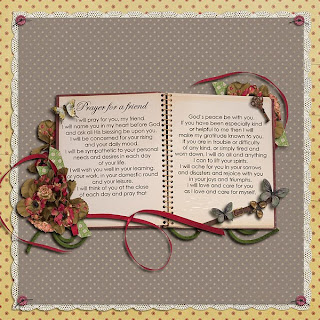 Prayer for a friend
I will pray for you, my friend.
I will name you in my heart before God
and ask all His blessing be upon you.
I will be concerned for your rising
and your daily mood.
I will be sympathetic to your personal
needs and desires in each day
of your life.
I will wish you well in your learning,
or your work, in your domestic round
and your leisure.
I will think of you at the close
of each day and pray that
God's peace be with you.
If you have been especially kind
or helpful to me then I will
make my gratitude known to you.
If you are in trouble or difficulty
of any kind, or simply tired and
worn down, I will do all and anything
I can to lift your spirits.
I will ache for you in your sorrows
and disasters and rejoice with you
in your joys and triumphs.
I will love and care for you
as I love and care for myself.